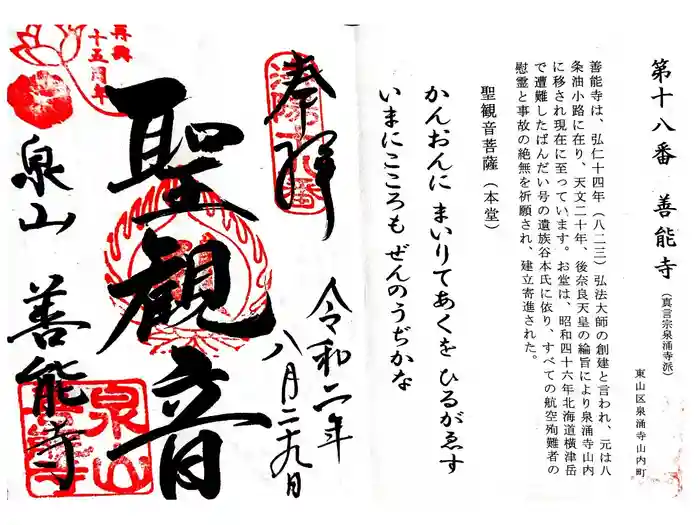 第十八番 善能寺(真言宗泉涌寺派)
東山区泉涌寺山内町
善能寺は、弘仁十四年(八二三)弘法大師の創建と言われ、元は八
条油小路に在り、天文二十年、後奈良天皇の綸旨により泉涌寺山内
に移され現在に至っています。お堂は、昭和四十六年北海道横津岳
で遭難したばんだい号の遺族谷本氏に依り、すべての航空殉難者の
慰霊と事故の絶無を祈願され、建立寄進された。
聖観音菩薩(本堂)
かんおんに まいりてあくを ひるがゑす
いまにこころも ぜんのうぢかな
奉拝
令和二年
八月二九日
聖観音
再興
十五周年
泉山 善能寺
泉山